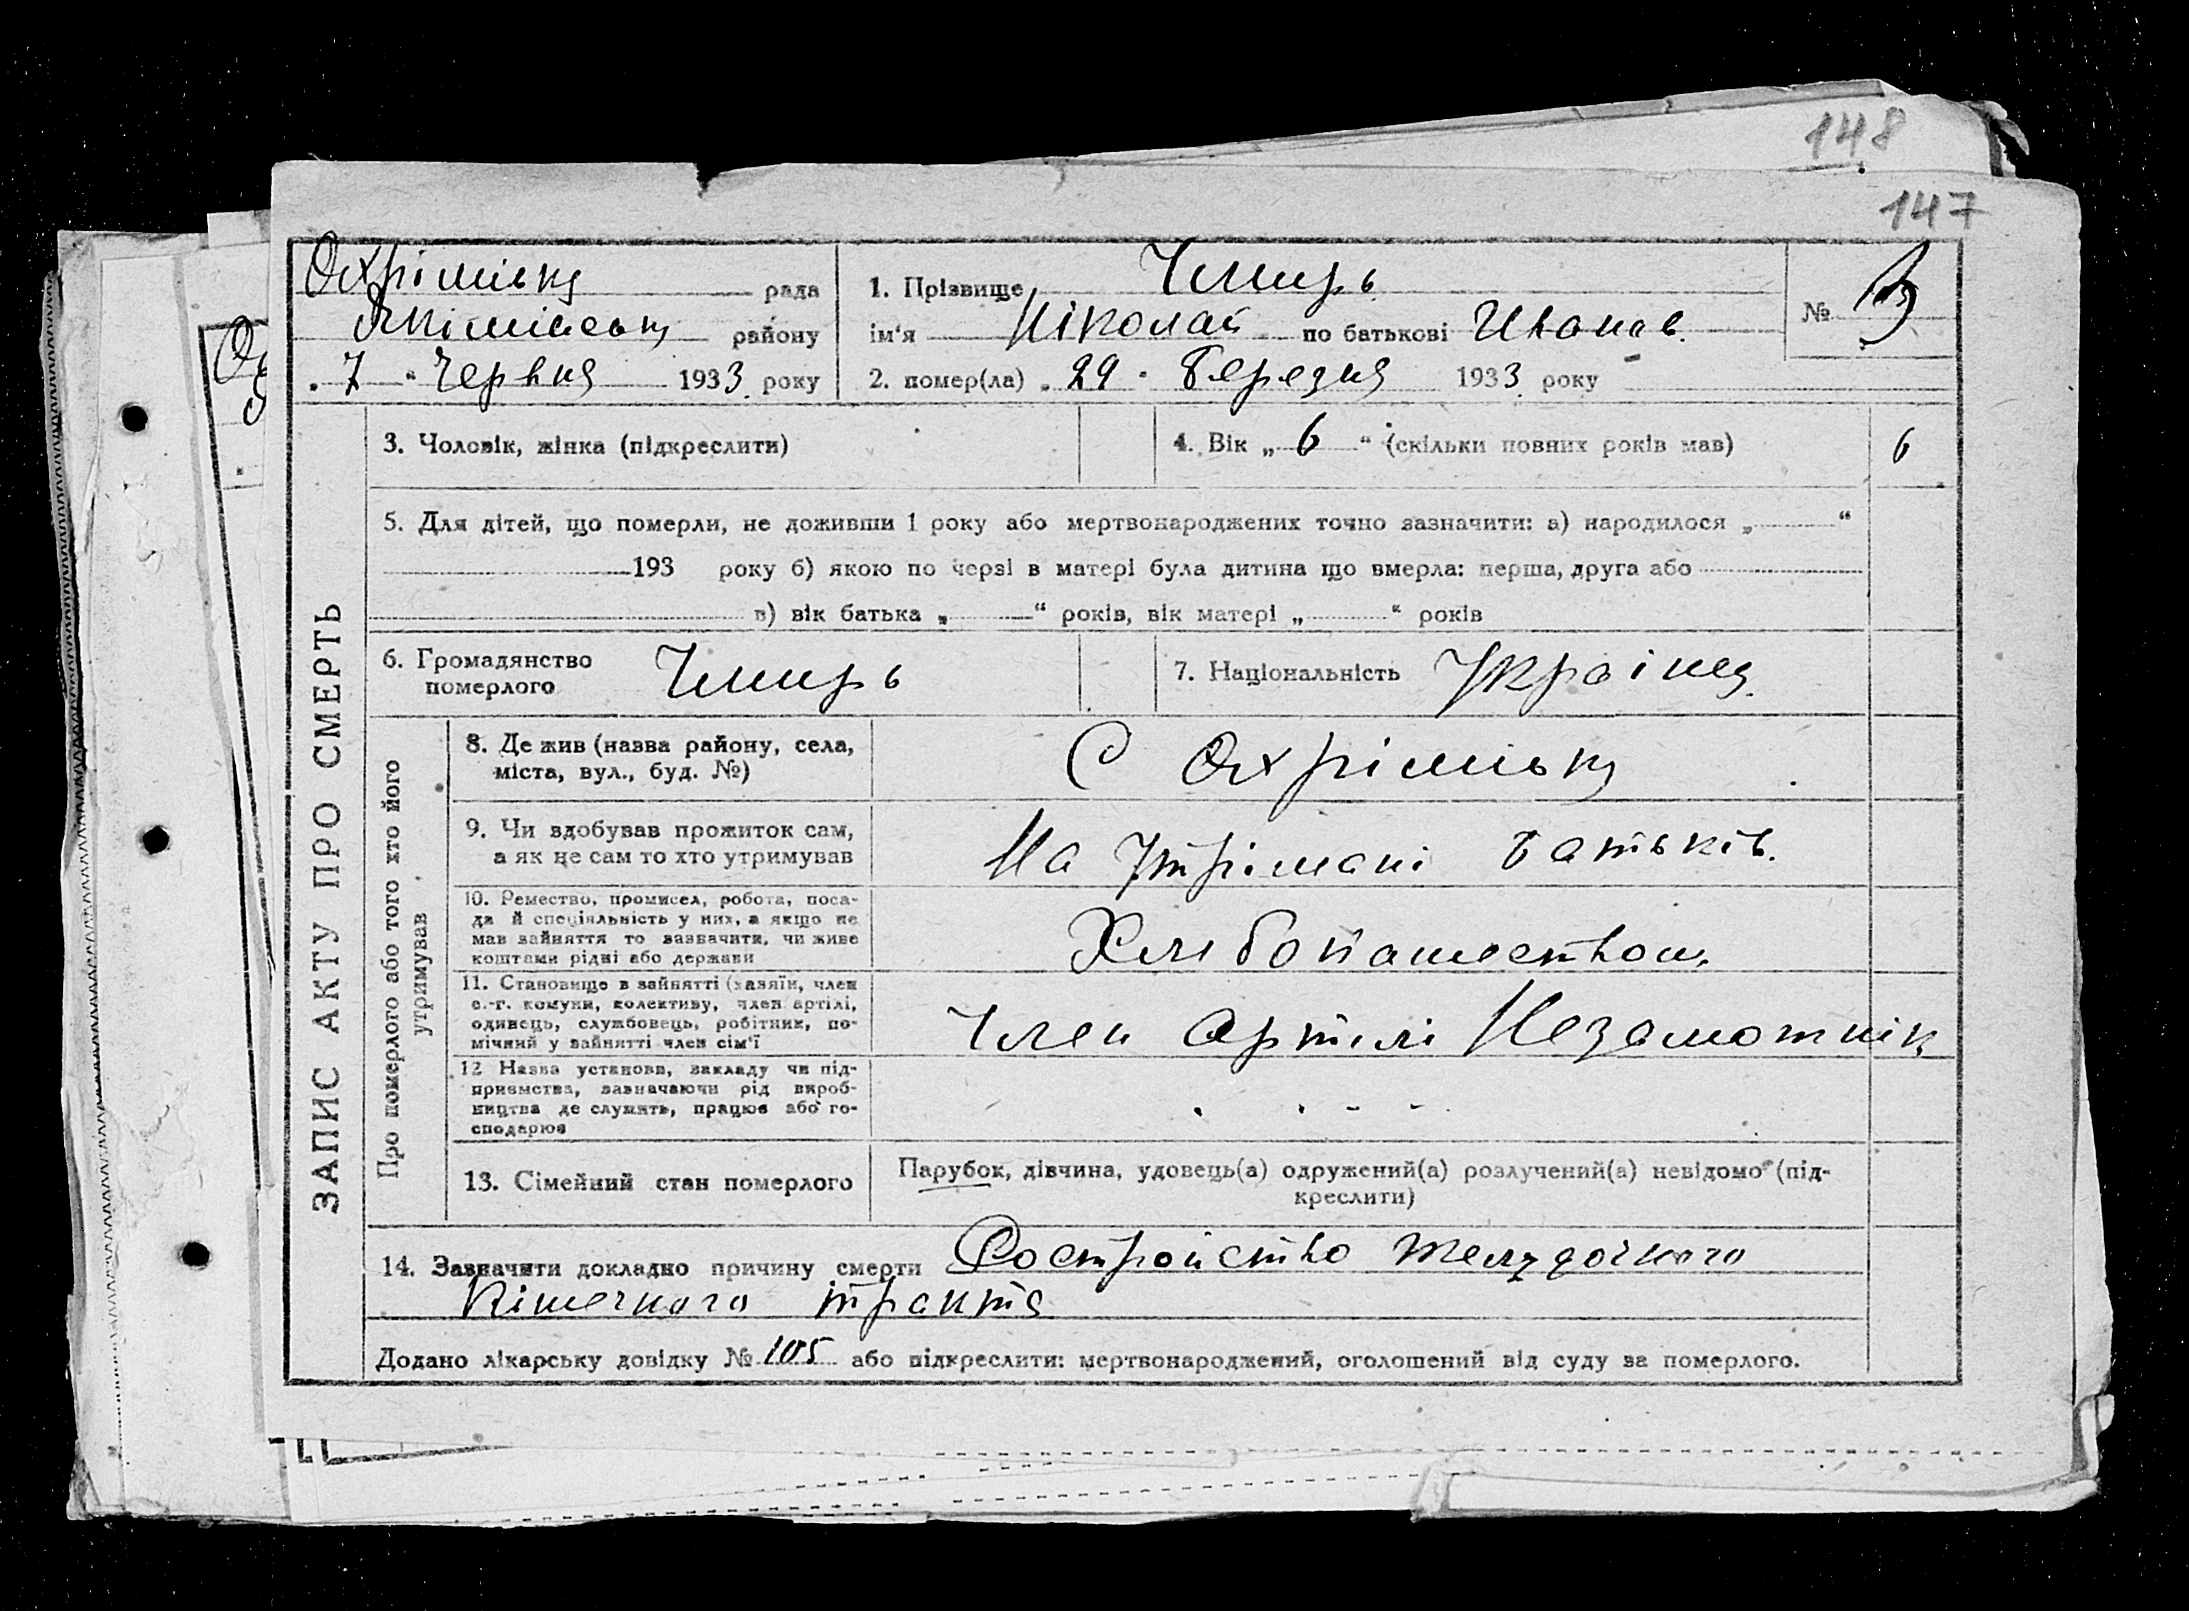 148
147
Охрімівка рада
Якімівськ району
„ 7 “ Червня 1933 року
1. Прізвище Чмирь
ім'я Ніколай по батькові Иванов.
2. помер(ла) „ 29 “ Березня 1933 року
№
3. Чоловік, жінка (підкреслити)
4. Вік „ 6 “ (скільки повних років мав)
6
5. Для дітей, що померли, не доживши 1 року або мертвонароджених точно зазначити: а) народилося „ “
193 року б) якою по черзі в матері була дитина що вмерла: перша, друга або
в) вік батька „ “ років, вік матері „ “ років
6. Громадянство
померлого Чмирь
7. Національність Україне
ЗАПИС АКТУ ПРО СМЕРТЬ
Про померлого або того хто його
утримував
8. Де жив (назва району, села,
міста, вул., буд. №)
С Охрімівка
9. Чи здобував прожиток сам,
а як не сам то хто утримував
На Утрімані батьків.
10. Ремество, промисел, робота, поса-
да й спеціяльність у них, а якщо не
мав зайняття то зазначити, чи живе
коштами рідні або держави
Хлібопашеством
11. Становище в зайнятті (хазяїн, член
с.-г. комуни, колективу, член артілі,
одинець, службовець, робітник, по-
мічний у зайнятті член сім'ї
Член Артілі Незаможнік
12 Назва установи, закладу чи під-
приємства, зазначаючи рід вироб-
ництва де служить, працює або го-
сподарює
13. Сімейний стан померлого
Парубок, дівчина, удовець(а) одружений(а) розлучений(а) невідомо (під-
креслити)
14. Зазначити докладно причину смерти Ростройство желудочного
Кішечного тракта
Додано лікарську довідку № 105 або підкреслити: мертвонароджений, оголошений від суду за померлого.